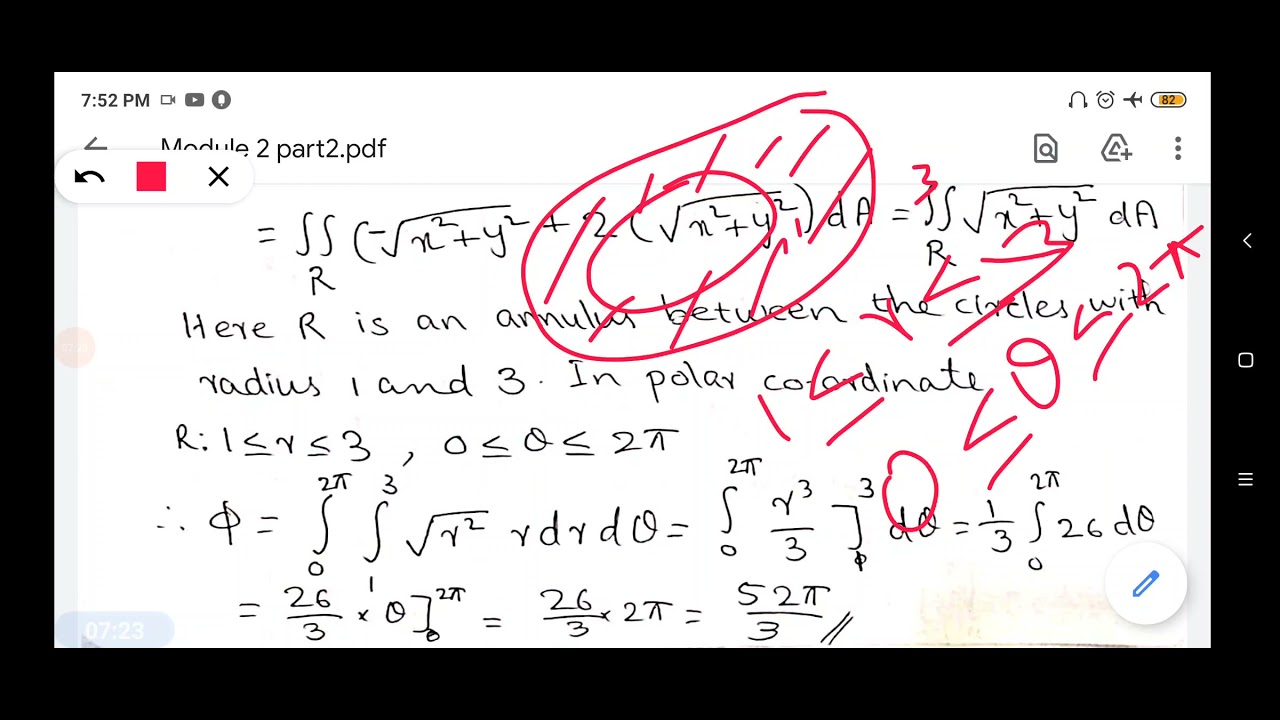 7:52 PM 82
Module 2 part2.pdf
= ∬_R (-√(x²+y²) + 2(√(x²+y²))) dA = ∬_R √(x²+y²) dA
Here R is an annulus between the circles with
radius 1 and 3. In polar co-ordinate
R: 1 ≤ r ≤ 3, 0 ≤ θ ≤ 2π
∴ φ = ∫₀^2π ∫₁^3 √r² r dr dθ = ∫₀^2π r³/3 ]₁^3 dθ = 1/3 ∫₀^2π 26 dθ
= 26/3 × θ]₀^2π = 26/3 × 2π = 52π/3 //
3
1 ≤ r ≤ 3
0 ≤ θ ≤ 2π
07:23